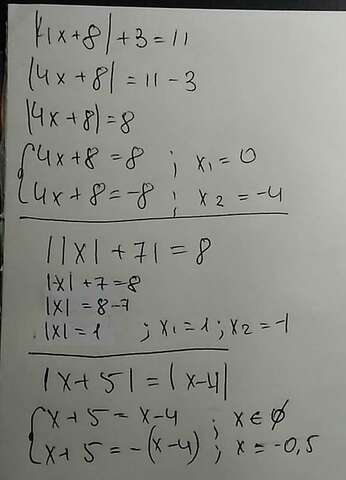 |4x+8|+3=11
|4x+8|=11-3
|4x+8|=8
{4x+8=8 ; x₁=0
4x+8=-8 ; x₂=-4
||x|+7|=8
|x|+7=8
|x|=8-7
|x|=1 ; x₁=1; x₂=-1
|x+5|=|x-4|
{x+5=x-4 ; x∈∅
x+5=-(x-4) ; x=-0,5